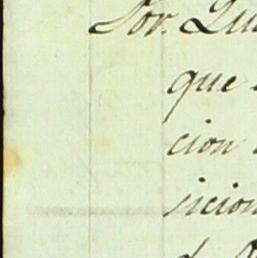 Por. Lu
que
cion
sicion
d